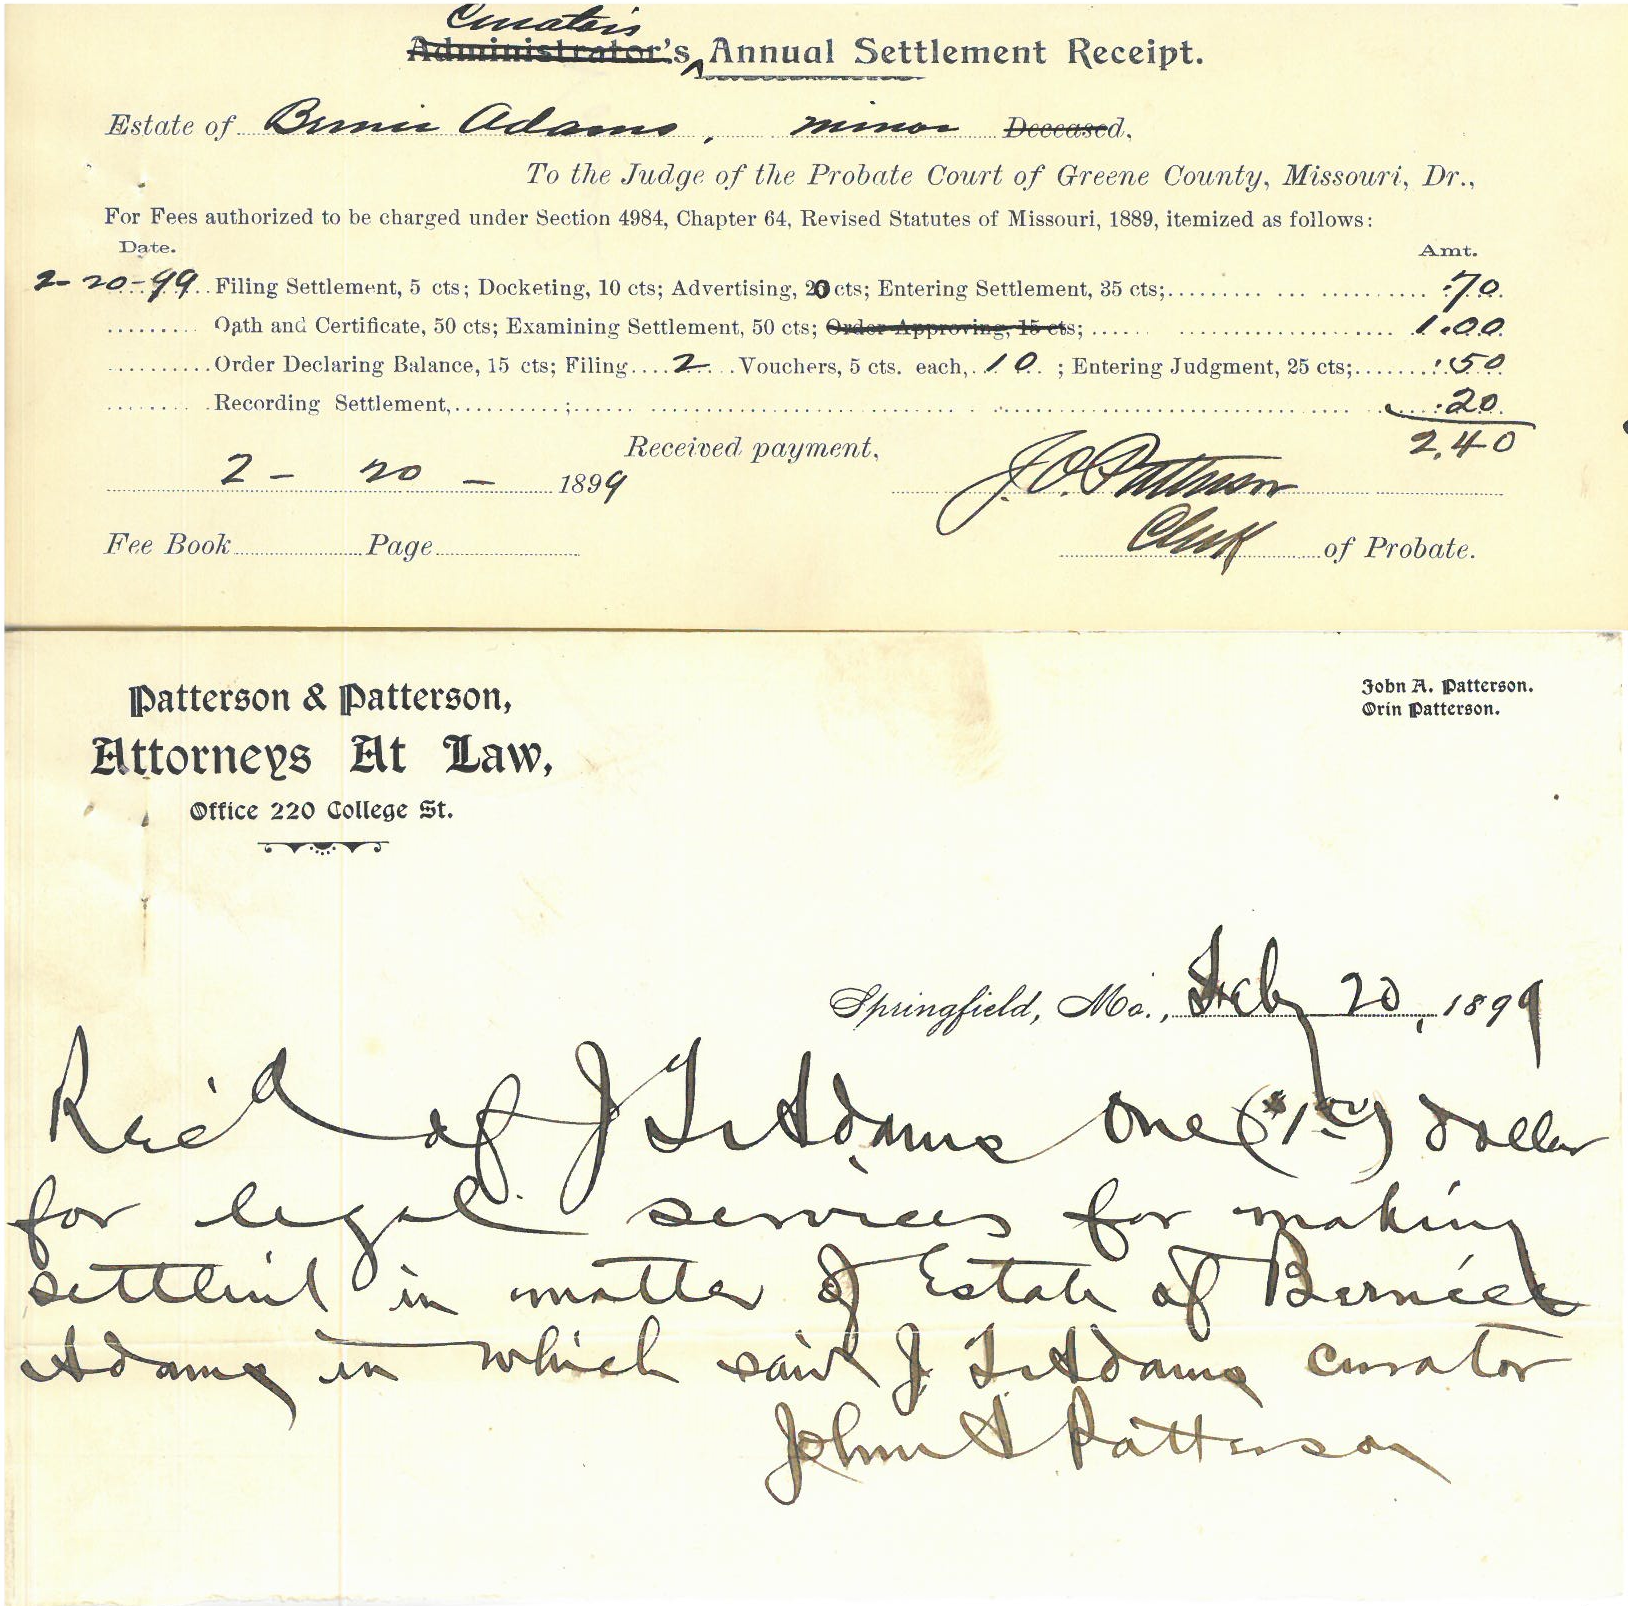 Curators
Administrator's Annual Settlement Receipt.
Estate of Bernie Adams, minor Deceased,
To the Judge of the Probate Court of Greene County, Missouri, Dr.,
For Fees authorized to be charged under Section 4984, Chapter 64, Revised Statutes of Missouri, 1889, itemized as follows:
Date. Amt.
2-20-99 Filing Settlement, 5 cts; Docketing, 10 cts; Advertising, 20 cts; Entering Settlement, 35 cts; .70
Oath and Certificate, 50 cts; Examining Settlement, 50 cts; Order Approving, 15 cts; 1.00
Order Declaring Balance, 15 cts; Filing 2 Vouchers, 5 cts. each, 10 ; Entering Judgment, 25 cts; .50
Recording Settlement, ; .20
2.40
Received payment,
2 - 20 - 1899 J. O. Patterson
Fee Book Page Clerk of Probate.
Patterson & Patterson,
Attorneys At Law,
Office 220 College St.
John A. Patterson.
Orin Patterson.
Springfield, Mo., Feby 20, 1899
Rec'd of J Adams One ($1 00) dollar
for legal services for making
in matter of Estate of Bernice
Adams in which said J Adams curator
John A Patterson